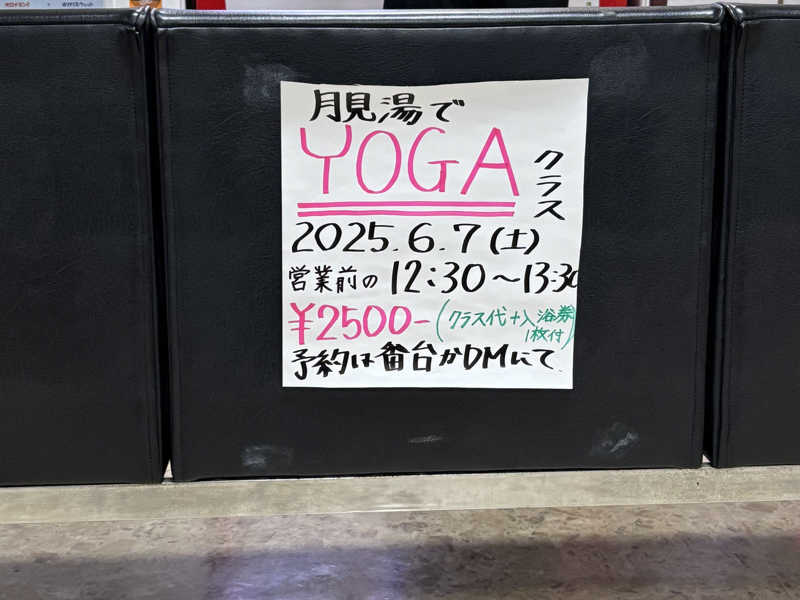 月見湯で
YOGA
クラス
2025.6.7(土)
営業前の 12:30〜13:30
¥2500-(クラス代+入浴券
1枚付)
予約は番台かDMにて.